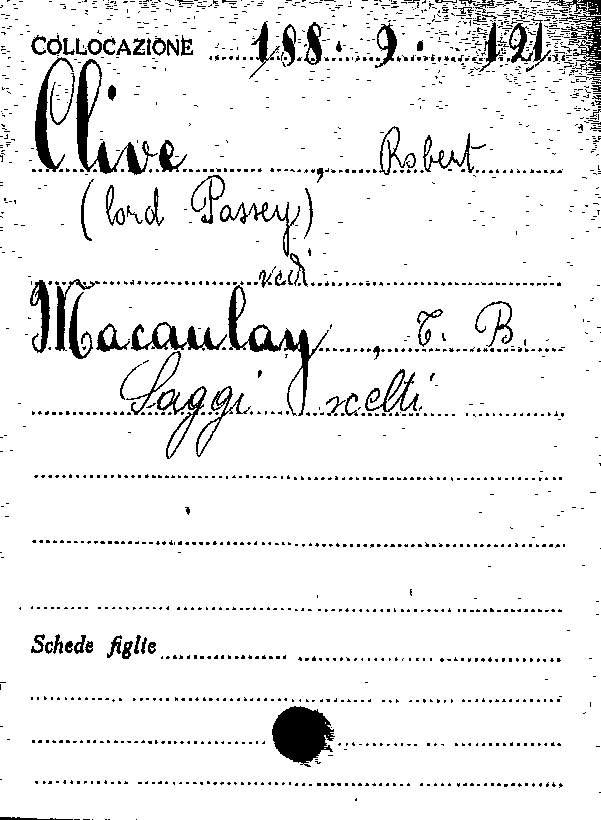 COLLOCAZIONE 188. 9. 121
Clive, Robert
(lord Passey)
vedi
Macaulay, T. B.
Saggi scelti
Schede figlie